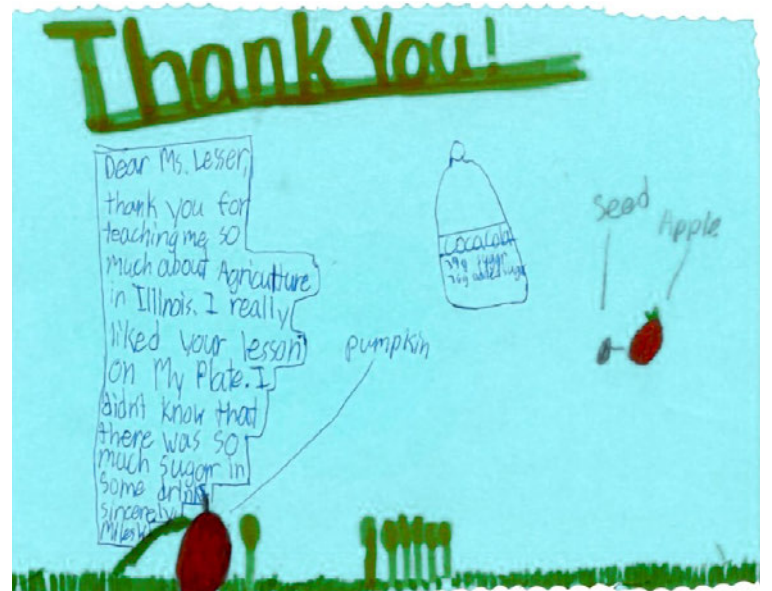 Thank You!
Dear Ms. Lesser,
thank you for
teaching me so
much about Agriculture
in Illinois. I really
liked your lesson
on My Plate. I
didn't know that
there was so
much sugar in
some drinks
sincerely
Miles
cocacola
39g sugar
added sugar
seed
Apple
pumpkin